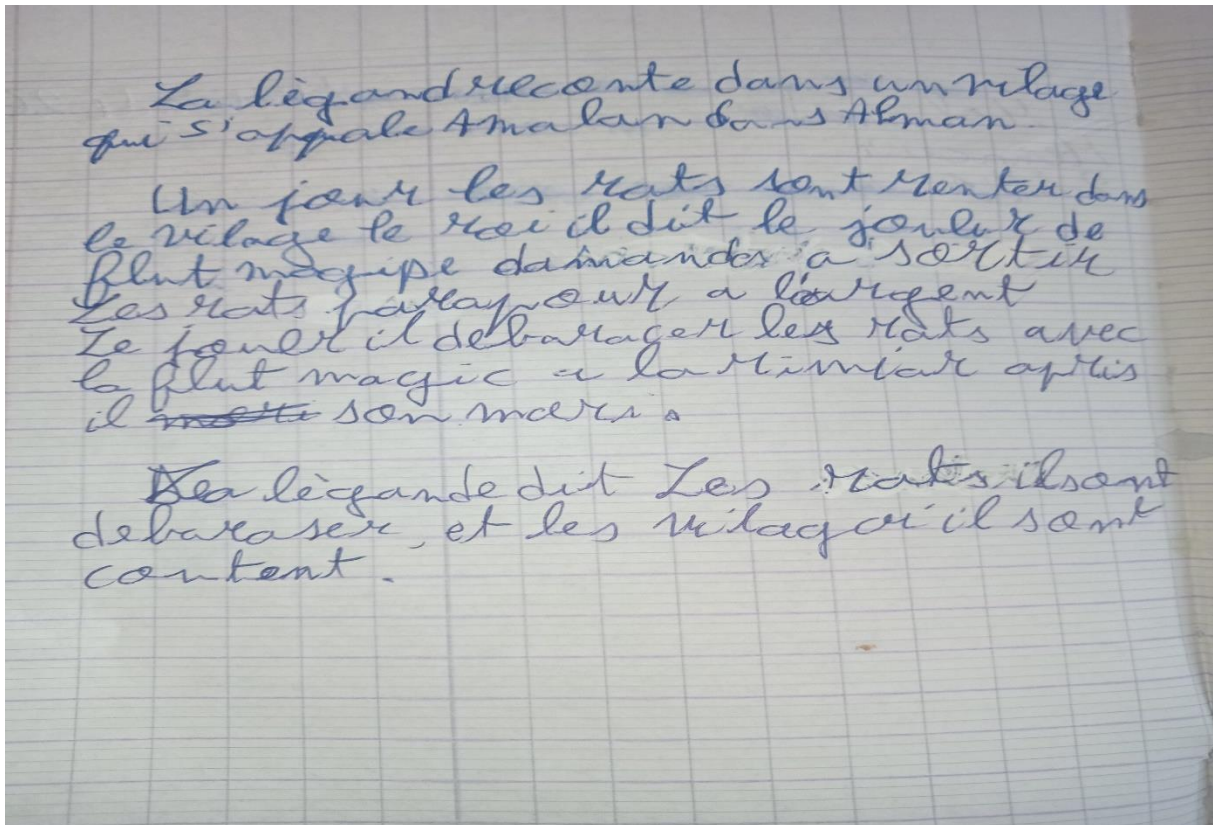 La lègand reconte dans un vilage
qui s'appale Amalan dans Alman.
Un jour les rats sont renter dans
le vilage le roi il dit le joulur de
flut magipe damandes a sortir
Les rats parapour a l'argent
Le jouer il debarager les rats avec
la flut magic a la rimiar apris
il son mers.
La lègande dit Les rats il sont
debaraser, et les vilagoi il sont
content.